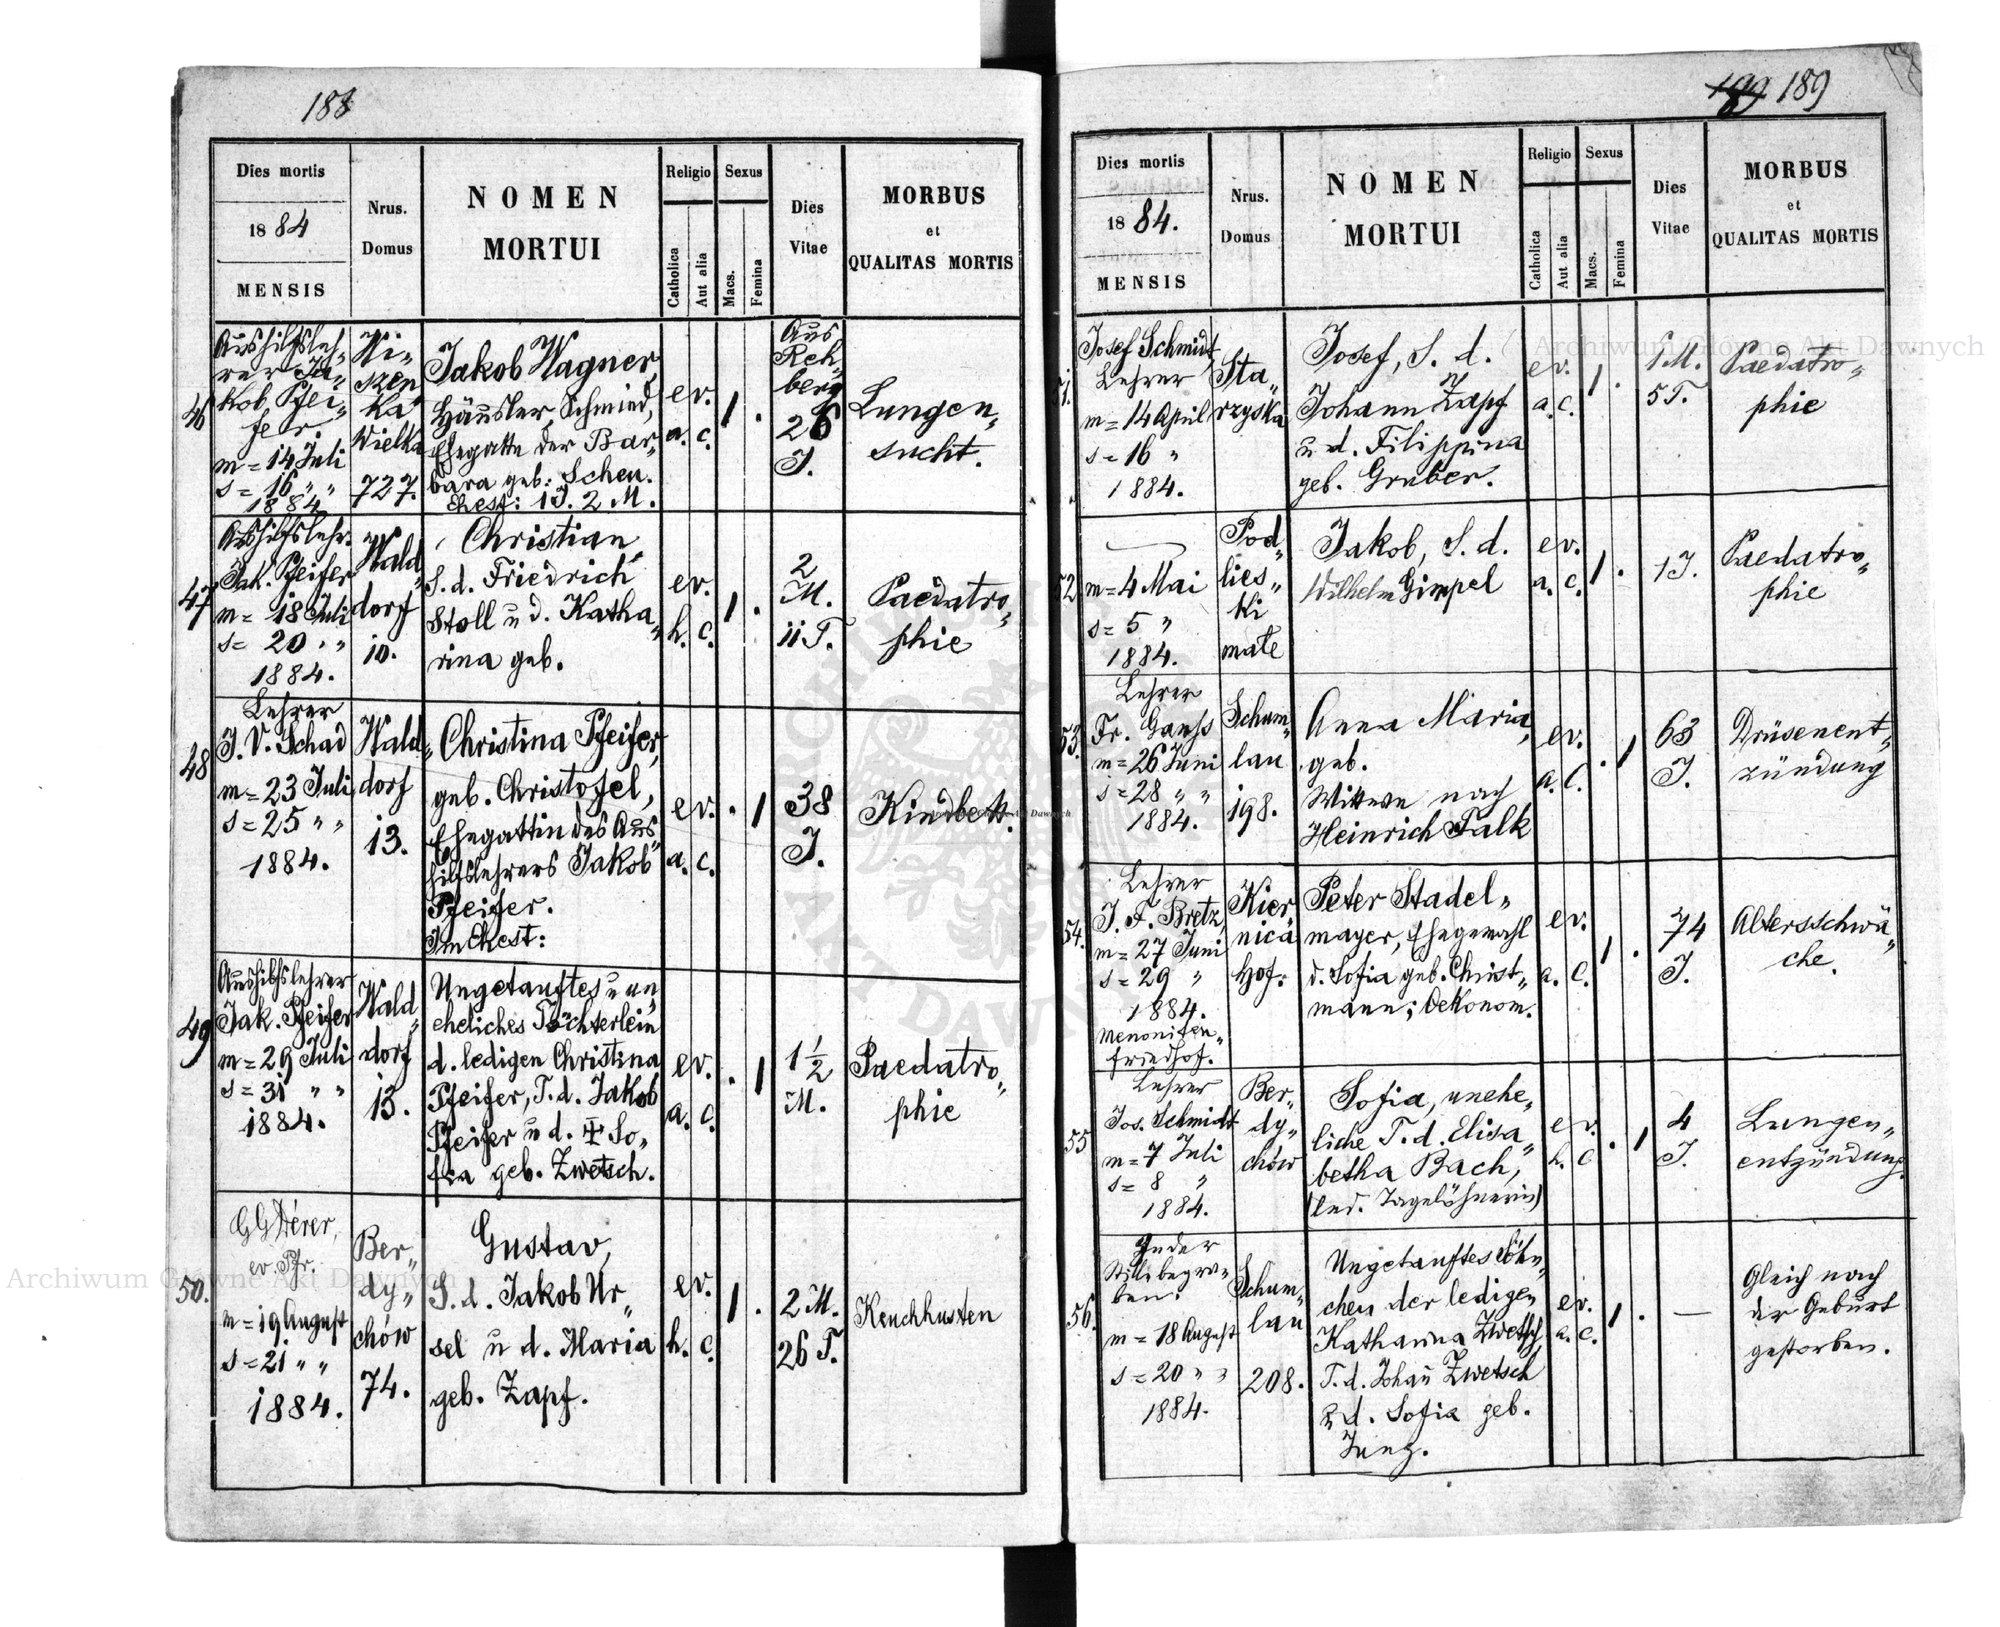 188
Dies mortis
1884
MENSIS
Nrus.
Domus
NOMEN
MORTUI
Religio
Catholica
Aut alia
Sexus
Macs.
Femina
Dies
Vitae
MORBUS
et
QUALITAS MORTIS
46
Aushilfsleh„
rer Ja„
kob Pfei„
fer.
m = 14 Juli
s = 16 „ „
1884
Wi„
szen
ka
Wielka
727.
Jakob Wagner,
Häusler, Schmied,
Ehegatte der Bar„
bara geb: Scheu.
Ehest: 1J. 2 M.
ev.
a. c.
1 .
Aus
Reh„
berg
26
J.
Lungen„
sucht.
47
Aushilfslehr.
Jak. Pfeifer
m = 18 Juli
s = 20 „ „
1884.
Wald„
dorf
10.
Christian,
S. d. Friedrich
Stoll u d. Katha„
rina geb.
ev.
h. c.
1 .
2
M.
11 T.
Paedatro„
phie
48
Lehrer
J. V. Schad
m = 23 Juli
s = 25 „ „
1884.
Wald„
dorf
13.
Christina Pfeifer,
geb. Christofel,
Ehegattin des Aus„
hilfslehrers Jakob
Pfeifer.
Im Ehest:
ev.
a. c.
. 1
38
J.
Kindbett.
49
Aushilfslehrer
Jak. Pfeifer
m = 29 Juli
s = 31 „ „
1884.
Wald„
dorf
13.
Ungetauftes u un„
eheliches Töchterlein
d. ledigen Christina
Pfeifer, T. d. Jakob
Pfeifer u d. ‡ So„
fia geb. Zwetsch.
ev.
a. c.
. 1
1½
M.
Paedatro„
phie
50.
ev. Pfr.
m = 19 August
s = 21 „ „
1884.
Ber„
dy„
chów
74.
Gustav,
S. d. Jakob Ur„
sel u d. Maria
geb. Zapf.
ev.
h. c.
1 .
2 M.
26 T.
Keuchhusten
189 189
Dies mortis
1884.
MENSIS
Nrus.
Domus
NOMEN
MORTUI
Religio
Catholica
Aut alia
Sexus
Macs.
Femina
Dies
Vitae
MORBUS
et
QUALITAS MORTIS
51.
Josef Schmidt,
Lehrer
m = 14 April
s = 16 „
1884.
Sta„
rzyska
Josef, S. d.
Johann Zapf
u d. Filippina
geb. Gruber.
ev.
a. c.
1 .
1 M.
5 T.
Paedatro„
phie
52
m = 4 Mai
s = 5 „
1884.
Pod„
lies„
ki
male
Jakob, S. d.
Wilhelm Gimpel
ev.
a. c.
1 .
1 J.
Paedatro„
phie
53.
Lehrer
Fr. Ganhs
m = 26 Juni
s = 28 „ „
1884.
Schum„
lau
198.
Anna Maria,
geb.
Wittwe nach
Heinrich Falk
ev.
a. c.
. 1
63
J.
Drüsenent„
zündung
54.
Lehrer
J. F. Bretz,
m = 27 Juni
s = 29 „
1884.
Menoniten„
friedhof.
Kier„
nica
Hof:
Peter Stadel„
mayer, Ehegemahl
d. Sofia geb. Christ„
mann; Oekonom.
ev.
a. c.
1 .
74
J.
Altersschwä„
che.
55
Lehrer
Jos. Schmidt
m = 7 Juli
s = 8 „
1884.
Ber„
dy„
chów
Sofia, unehe„
liche T. d. Elisa„
betha Bach,
(led. Tagelöhnerin)
ev.
h. c
. 1
4
J.
Lungen„
entzündung.
56.
In der
Stille begra„
ben.
m = 18 August
s = 20 „ „
1884.
Schum„
lau
208.
Ungetauftes Söhn„
chen der ledigen
Katharina Zwetsch
T. d. Johan Zwetsch
u d. Sofia geb.
Jung.
ev.
a. c.
1 .
—
Gleich nach
der Geburt
gestorben.
Archiwum Główne Akt Dawnych
Archiwum Główne Akt Dawnych
ARCHIWUM
AKT DAWNYCH